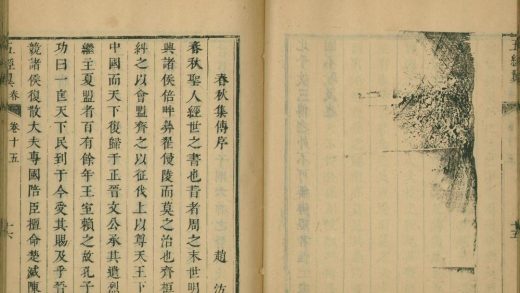 五經翼
春秋集傳序
趙汸
春秋聖人經世之書也昔者周之末世明
興諸侯倍畔彛翟侵陵而莫之治也齊桓
糾之以會盟齊之以征伐上以尊天王下
中國而天下復歸于正晉文公承其遺烈
繼主夏盟者百有餘年王室賴之故孔子
功曰一匡天下民到于今受其賜及乎晉
競諸侯復散大夫專國陪臣擅命楚滅陳
五經翼 卷十五